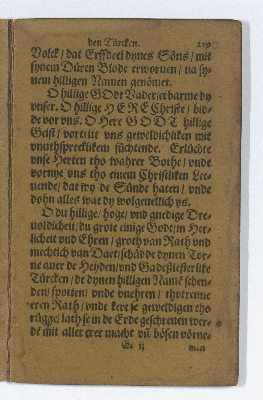 den Türcken. 219
Volck / dat Erffdeel dynes Söns / mit
synem Düren Blode erworuen / na sy-
nem hilligen Namen genömet.
O hillige GOdt Vader / erbarme dy
vnser. O hillige HERE Christe / bid-
de vor vns. O Here GODT hillige
Geist / vortritt vns geweldichliken mit
vnuthspreklikem süchtende. Erlüchte
vnse Herten tho wahrer Bothe / vnde
vornye vns tho einem Christliken Le-
uende / dat wy de Sünde haten / vnde
dohn alles wat dy wolgeuellich ys.
O du hillige / hoge / vnd gnedige Dre-
uoldicheit / du grote einige Gott / im Her-
licheit vnd Ehren / groth van Rath vnd
mechtich van Daet / schüdde dynen Tor-
ne auer de Heyden / vnd Gadeslesterlike
Türcken / de dynen hilligen Namē schen-
den / spotten / vnde vnehren / thotrenne
eren Rath / vnde kere se geweldigen tho
rügge / lath se in de Erde geschreuen wer-
dē mit aller erer macht vñ bösen vörne-
Ee ij
men